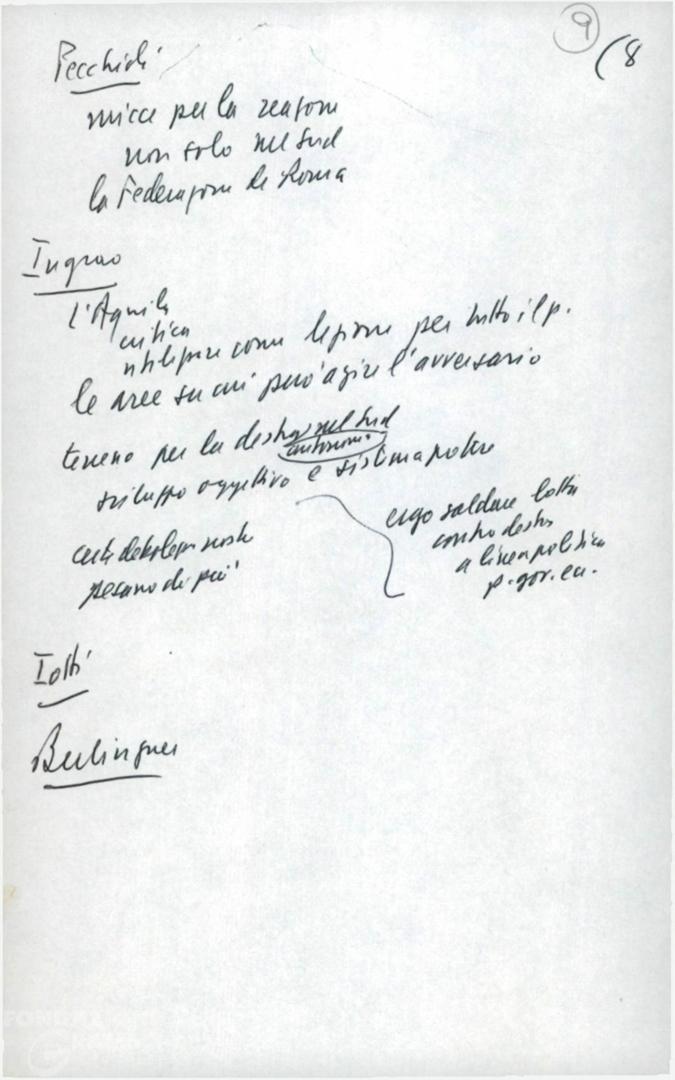 9
(8
Pecchioli
micce per la reazione
non solo nel Sud
la Federazione di Roma
Ingrao
L'Aquila
critica
utilizzare come lezione per tutto il p.
le aree su cui può agire l'avversario
terreno per la destra nel Sud
autonomi
sviluppo oggettivo e sistema potere
certe debolezze nostre
pesano di più
ergo saldare lotta
contro destra
a linea politica
p. gov. ec.
Iotti
Berlinguer
FONDAZIONE